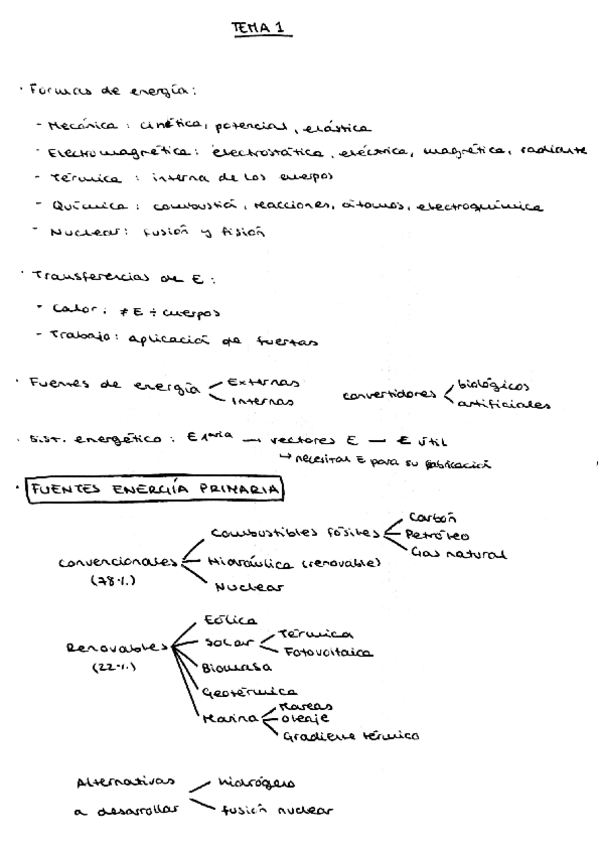 TEMA 1
· Formas de energía:
- Mecánica: cinética, potencial, elástica
- Electromagnética: electrostática, eléctrica, magnética, radiante
- Térmica: interna de los cuerpos
- Química: combustión, reacciones, átomos, electroquímica
- Nuclear: fusión y fisión
· Transferencias de E:
- Calor: ≠ E ÷ cuerpos
- Trabajo: aplicación de fuerzas
· Fuentes de energía
Externas
Internas
convertidores
biológicos
artificiales
· Sist. energético: E 1aria → vectores E → E útil
↳ necesitan E para su fabricación
· FUENTES ENERGÍA PRIMARIA
Convencionales
(78%)
Combustibles fósiles
Carbón
Petróleo
Gas natural
Hidráulica (renovable)
Nuclear
Renovables
(22%)
Eólica
Solar
Térmica
Fotovoltaica
Biomasa
Geotérmica
Marina
Mareas
Oleaje
Gradiente térmico
Alternativas
a desarrollar
hidrógeno
fusión nuclear